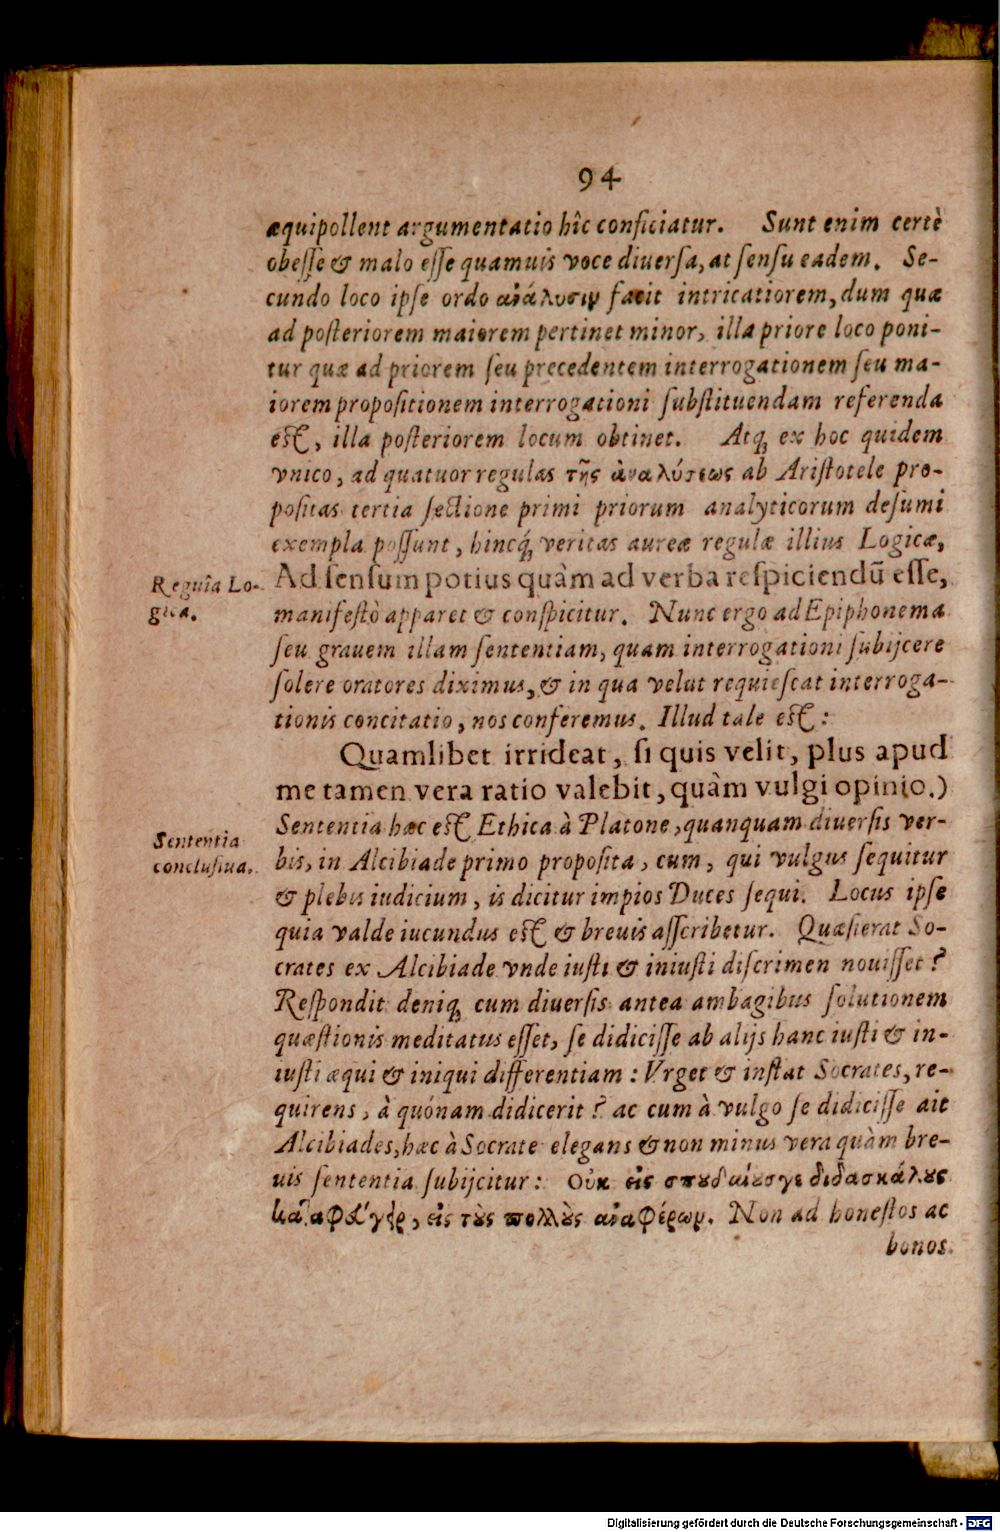 94
æquipollent argumentatio hîc conficiatur. Sunt enim certè
obesse & malo esse quamuis voce diuersa, at sensu eadem. Se-
cundo loco ipse ordo ἀνάλυσιν facit intricatiorem, dum quæ
ad posteriorem maiorem pertinet minor, illa priore loco poni-
tur quæ ad priorem seu precedentem interrogationem seu ma-
iorem propositionem interrogationi substituendam referenda
est, illa posteriorem locum obtinet. Atq; ex hoc quidem
vnico, ad quatuor regulas τῆς ἀναλύσεως ab Aristotele pro-
positas tertia sectione primi priorum analyticorum desumi
exempla possunt, hincq́; veritas aureæ regulæ illius Logicæ,
Regula Lo-
gica.
Ad sensum potius quàm ad verba respiciendū esse,
manifestò apparet & conspicitur. Nunc ergo ad Epiphonema
seu grauem illam sententiam, quam interrogationi subijcere
solere oratores diximus, & in qua velut requiescat interroga-
tionis concitatio, nos conferemus. Illud tale est:
Quamlibet irrideat, si quis velit, plus apud
me tamen vera ratio valebit, quàm vulgi opinio.)
Sententia
conclusiua.
Sententia hæc est Ethica à Platone, quanquam diuersis ver-
bis, in Alcibiade primo proposita, cum, qui vulgus sequitur
& plebis iudicium, is dicitur impios Duces sequi. Locus ipse
quia valde iucundus est & breuis asscribetur. Quæsierat So-
crates ex Alcibiade vnde iusti & iniusti discrimen nouisset?
Respondit deniq; cum diuersis antea ambagibus solutionem
quæstionis meditatus esset, se didicisse ab alijs hanc iusti & in-
iusti æqui & iniqui differentiam: Vrget & instat Socrates, re-
quirens, à quónam didicerit? ac cum à vulgo se didicisse ait
Alcibiades, hæc à Socrate elegans & non minus vera quàm bre-
uis sententia subijcitur: Οὐκ εἰς σπουδαίους γε διδασκάλους
καταφεύγεις, εἰς τοὺς πολλοὺς ἀναφέρων. Non ad honestos ac
bonos.
Digitalisierung gefördert durch die Deutsche Forschungsgemeinschaft - DFG